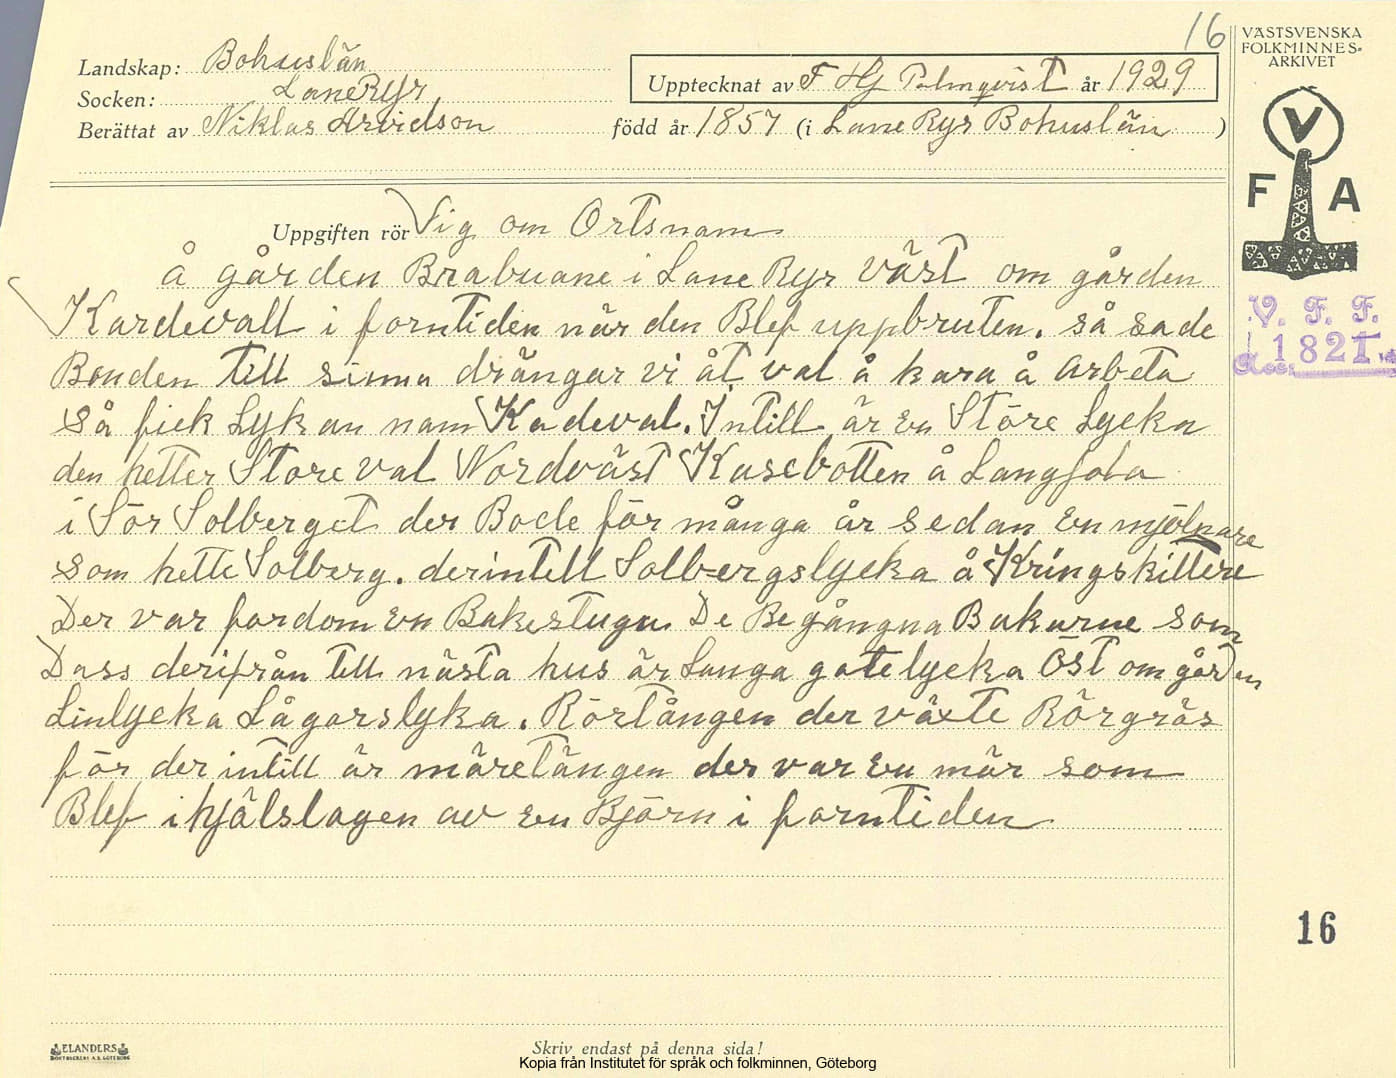 16
VÄSTSVENSKA
FOLKMINNES-
ARKIVET
Landskap: Bohuslän
Upptecknat av F Hj Palmqvist år 1929
Socken: Lane Ryr
Berättat av Niklas Arvidson född år 1857 (i Lane Ryr Bohuslän )
V
F A
V. F. F.
1821
Acc.
Uppgiften rör Sig om Ortsnam
å gården Brabuane i Lane Ryr väst om gården
Kardevall i forntiden når den Blef uppbruten. så sade
Bonden till sinna drängar vi åt val å kara å arbeta
Så fick Lykan nam Kadeval. Intill är en Störe Lycka
den hetter Store val Nordväst Kasebotten å Langfola
i Sör Solberget der Bode för många år sedan en mjölnare
som hette Solberg. derintill Solbergslycka å Kringskittere
Der var fordom en Bakestuga. De Begångna Bakarne som
Dass derifrån till nästa hus är Langa gatelycka Öst om gården
Linlycka Lågarslyka. Rörtången der växte Rörgräs
för der intill är märetången der var en mär som
Blef ihjälslagen av en Björn i forntiden
16
ELANDERS
BOKTRYCKERI A.B. GÖTEBORG
Skriv endast på denna sida!
Kopia från Institutet för språk och folkminnen, Göteborg